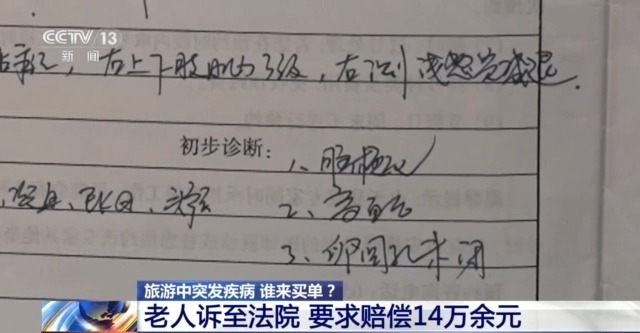 CCTV 13
新闻
右上下肢肌力3级，右侧浅感觉减退.
初步诊断：1、脑梗死
EKG、2、高血压
3、卵圆孔未闭
旅游中突发疾病 谁来买单？
老人诉至法院 要求赔偿14万余元